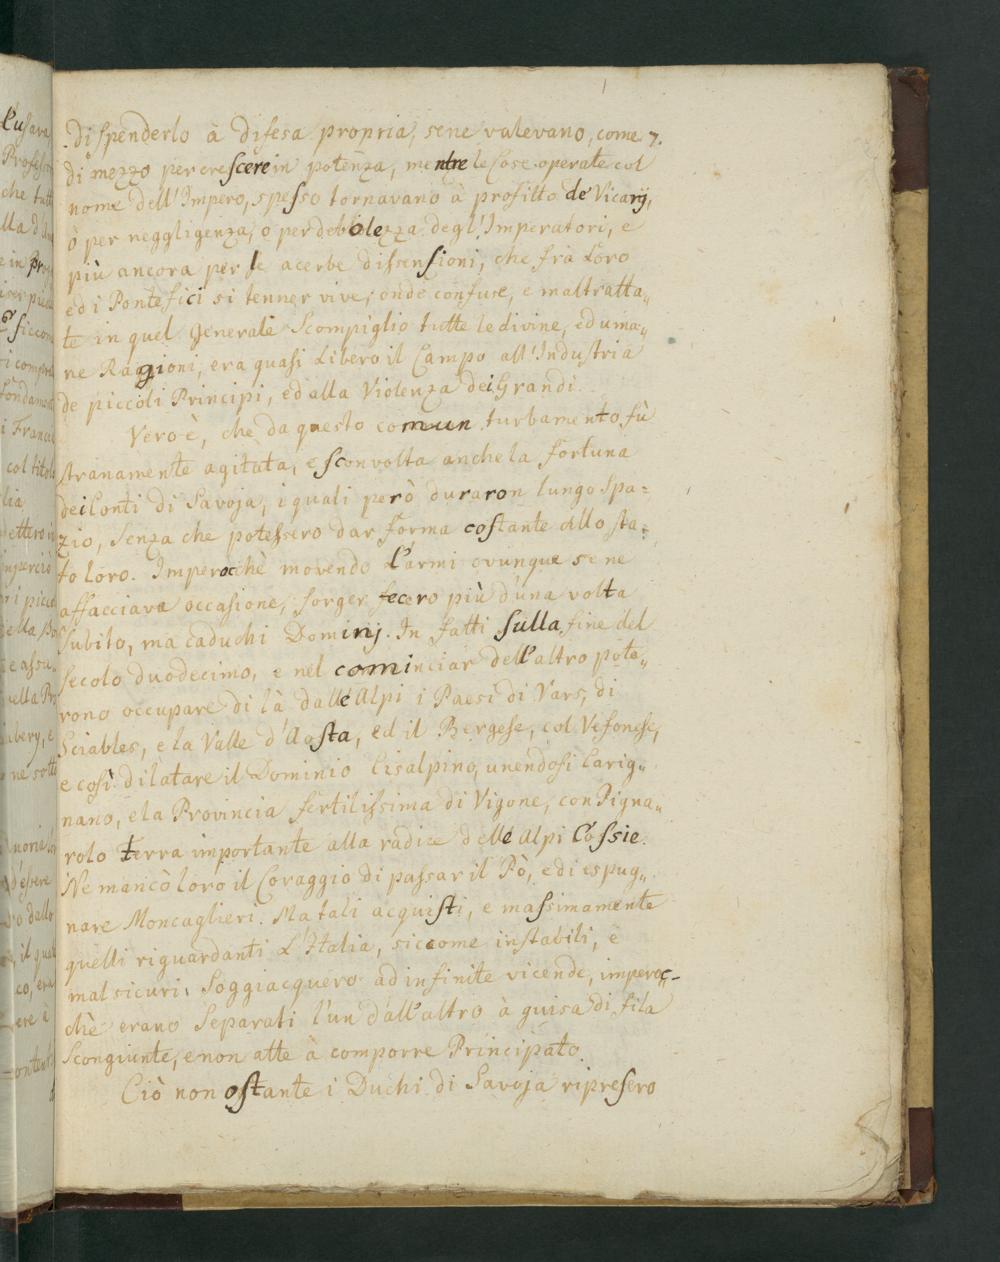 di spenderlo à difesa propria, sene valevano, come 7.
di mezzo per crescere in potenza, mentre le Cose operate col
nome dell'Impero, spesso tornavano à profitto de' Vicarij,
ò per neggligenza, o per debolezza degl'Imperatori, e
più ancora per le acerbe dissensioni, che frà Loro
ed i Pontefici si tenner vive; onde confuse, e maltratta„
te in quel Generale Scompiglio tutte le divine, ed uma„
ne Raggioni, era quasi Libero il Campo all'Industria
de piccoli Principi, ed alla Violenza dei Grandi.
Vero è, che da questo comun turbamento fù
stranamente agitata, e sconvolta anche la fortuna
dei Conti di Savoja, i quali però duraron lungo Spa=
zio, Senza che potessero dar forma costante allo sta=
to loro. Imperocchè movendo l'armi ovunque se ne
affacciava occasione, sorger fecero più d'una volta
Subito, ma caduchi Dominj. In fatti sulla fine del
Secolo duodecimo, e nel cominciar dell'altro pote„
rono occupare di là dalle Alpi i Paesi di Vars, di
Sciables, e la Valle d'Aosta, ed il Bergese, col Vesonese,
e così dilatare il Dominio Cisalpino, unendosi Carig„
nano, e la Provincia fertilissima di Vigone, con Pigna„
rolo terra importante alla radice delle Alpi Cossie.
Ne mancò loro il Coraggio di passar il Pò, e di espug„
nare Moncaglieri. Ma tali acquisti, e massimamente
quelli riguardanti L'Italia, siccome instabili, e
mal sicuri, Soggiacquero ad infinite vicende, imperoc-
chè erano Separati l'un dall'altro à guisa di fila
Scongiunte, e non atte à comporre Principato.
Ciò non ostante i Duchi di Savoja ripresero